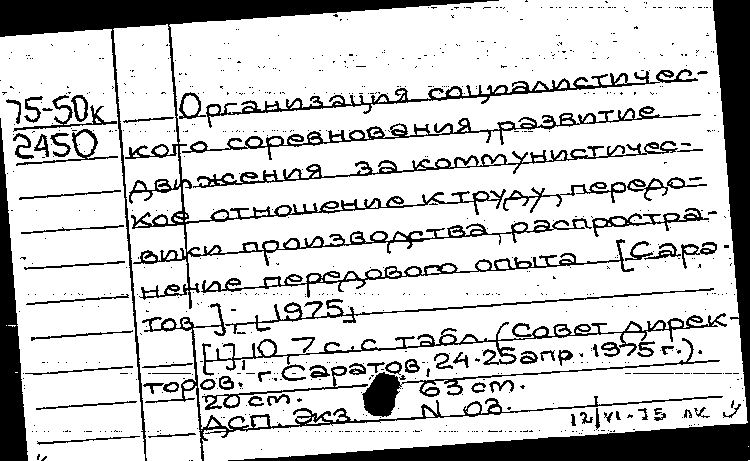 75-50к
2450
Организация социалистичес-
кого соревнования, развитие
движения за коммунистичес-
кое отношение к труду, передо=
вики производства, распростра-
нение передового опыта [Сара-
тов], [1975].
[1], 10, 7 с. с табл. (Совет дирек-
торов. г. Саратов, 24-25 апр. 1975 г.).
20 см. 63 см.
ДСП. Экз. N 03.
12/VI-75